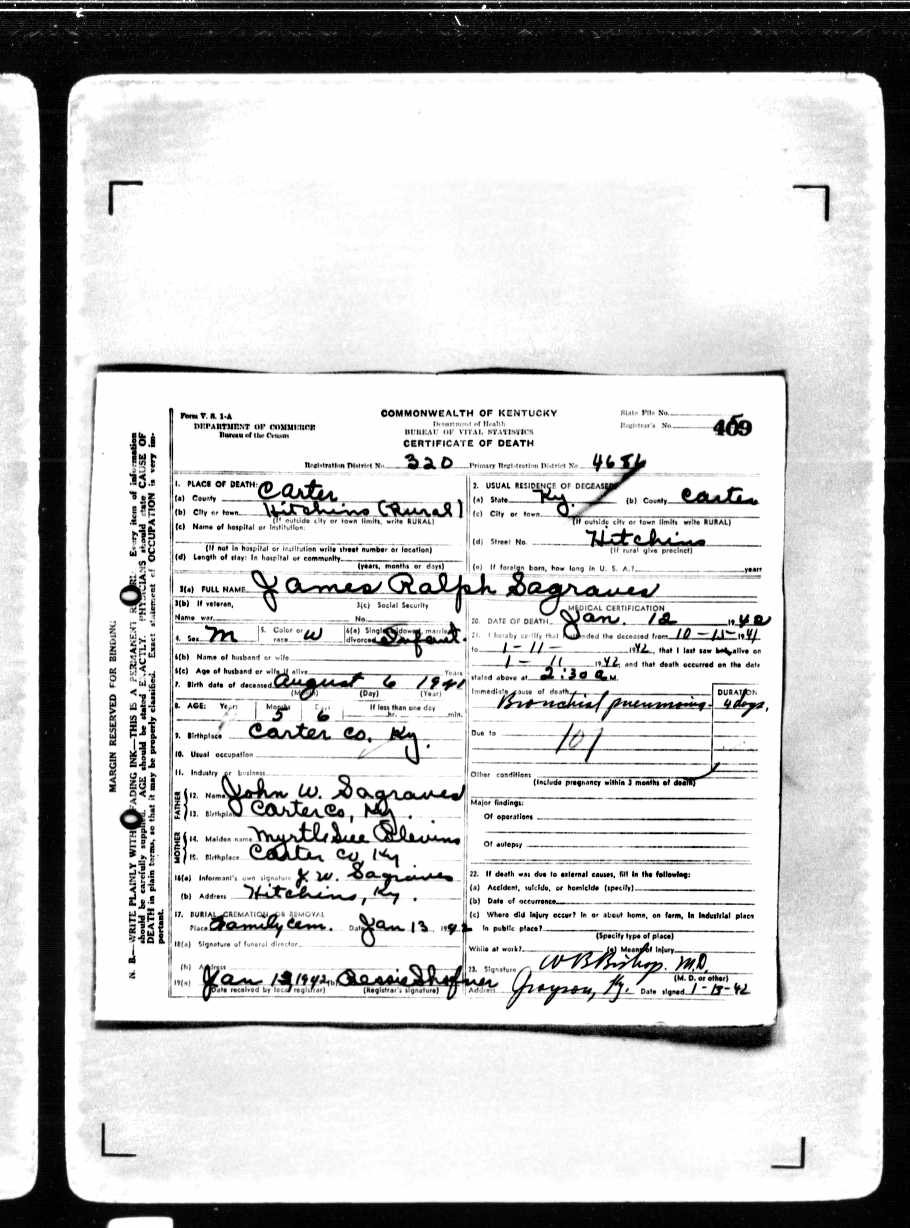 Form V. S. 1-A
DEPARTMENT OF COMMERCE
Bureau of the Census
COMMONWEALTH OF KENTUCKY
Department of Health
BUREAU OF VITAL STATISTICS
CERTIFICATE OF DEATH
State File No.
Registrar's No. 409
Registration District No. 320 Primary Registration District No. 4686
MARGIN RESERVED FOR BINDING
N. B.—WRITE PLAINLY WITH UNFADING INK—THIS IS A PERMANENT RECORD. Every item of information
should be carefully supplied. AGE should be stated EXACTLY. PHYSICIANS should state CAUSE OF
DEATH in plain terms, so that it may be properly classified. Exact statement of OCCUPATION is very im-
portant.
1. PLACE OF DEATH:
(a) County Carter
(b) City or town Hitchins (Rural)
(If outside city or town limits, write RURAL)
(c) Name of hospital or institution:
(If not in hospital or institution write street number or location)
(d) Length of stay: In hospital or community
(years, months or days)
2. USUAL RESIDENCE OF DECEASED
(a) State Ky. (b) County Carter
(c) City or town
(If outside city or town limits, write RURAL)
(d) Street No. Hitchins
(If rural give precinct)
(e) If foreign born, how long in U. S. A.? years
3(a) FULL NAME James Ralph Sagraves
3(b) If veteran, 3(c) Social Security
Name war No.
4. Sex M 5. Color or race W 6(a) Single, widowed, married, divorced Infant
6(b) Name of husband or wife
6(c) Age of husband or wife if alive Years
7. Birth date of deceased August 6 1941
(Month) (Day) (Year)
8. AGE: Years Months Days If less than one day
5 6 hr. min.
9. Birthplace Carter Co. Ky.
10. Usual occupation
11. Industry or business
FATHER
12. Name John W. Sagraves
13. Birthplace Carter Co, Ky.
MOTHER
14. Maiden name Myrtl Sue Blevins
15. Birthplace Carter Co, Ky.
16(a) Informant's own signature J. W. Sagraves
(b) Address Hitchins, Ky.
17. BURIAL, CREMATION OR REMOVAL
Place Family Cem. Date Jan 13, 1942
18(a) Signature of funeral director
(b) Address
19(a) Jan 13, 1942 (b) Bessie Shofner
(Date received by local registrar) (Registrar's signature)
MEDICAL CERTIFICATION
20. DATE OF DEATH Jan. 12 1942
21. I hereby certify that I attended the deceased from 10-15-1941
to 1-11- 1942, that I last saw alive on
1-11 1942 and that death occurred on the date
stated above at 2:30 a M.
Immediate cause of death DURATION
Bronchial pneumonia- 4 days,
Due to 101
Other conditions
(Include pregnancy within 3 months of death)
Major findings:
Of operations
Of autopsy
22. If death was due to external causes, fill in the following:
(a) Accident, suicide, or homicide (specify)
(b) Date of occurrence
(c) Where did injury occur? In or about home, on farm, in industrial place
in public place?
(Specify type of place)
While at work? (e) Means of Injury
23. Signature W B Bishop. M.D.
(M. D. or other)
Address Grayson, Ky. Date signed 1-13-42